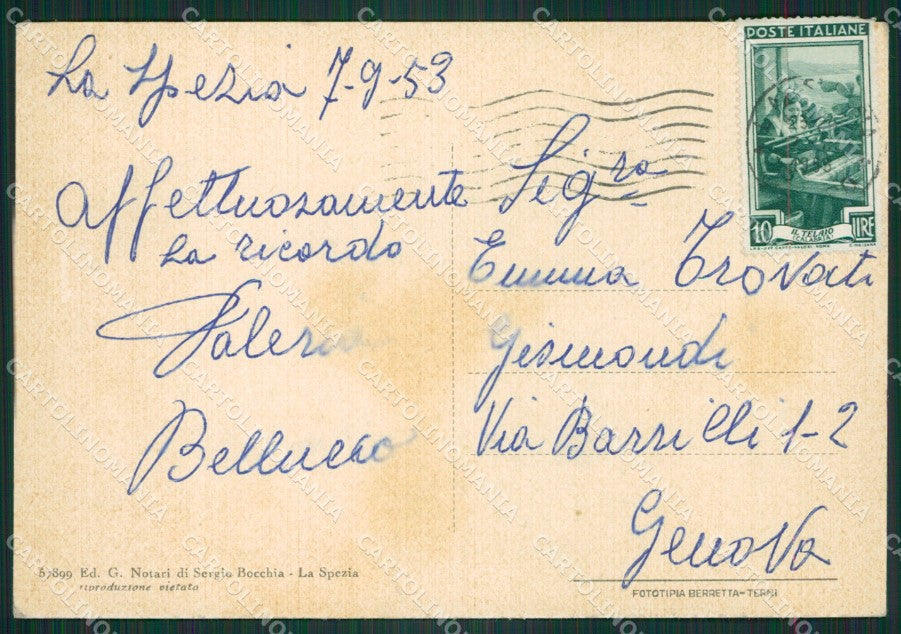 La Spezia 7-9-53
Affettuosamente
La ricordo
Valeria
Bellucco
POSTE ITALIANE
10 IL TELAIO LIRE
(CALABRIA)
Sig.ra
Emma Trovati
Gismondi
Via Barrilli 1-2
Genova
57899 Ed. G. Notari di Sergio Bocchia - La Spezia
riproduzione vietata
FOTOTIPIA BERRETTA-TERNI
CARTOLINOMANIA